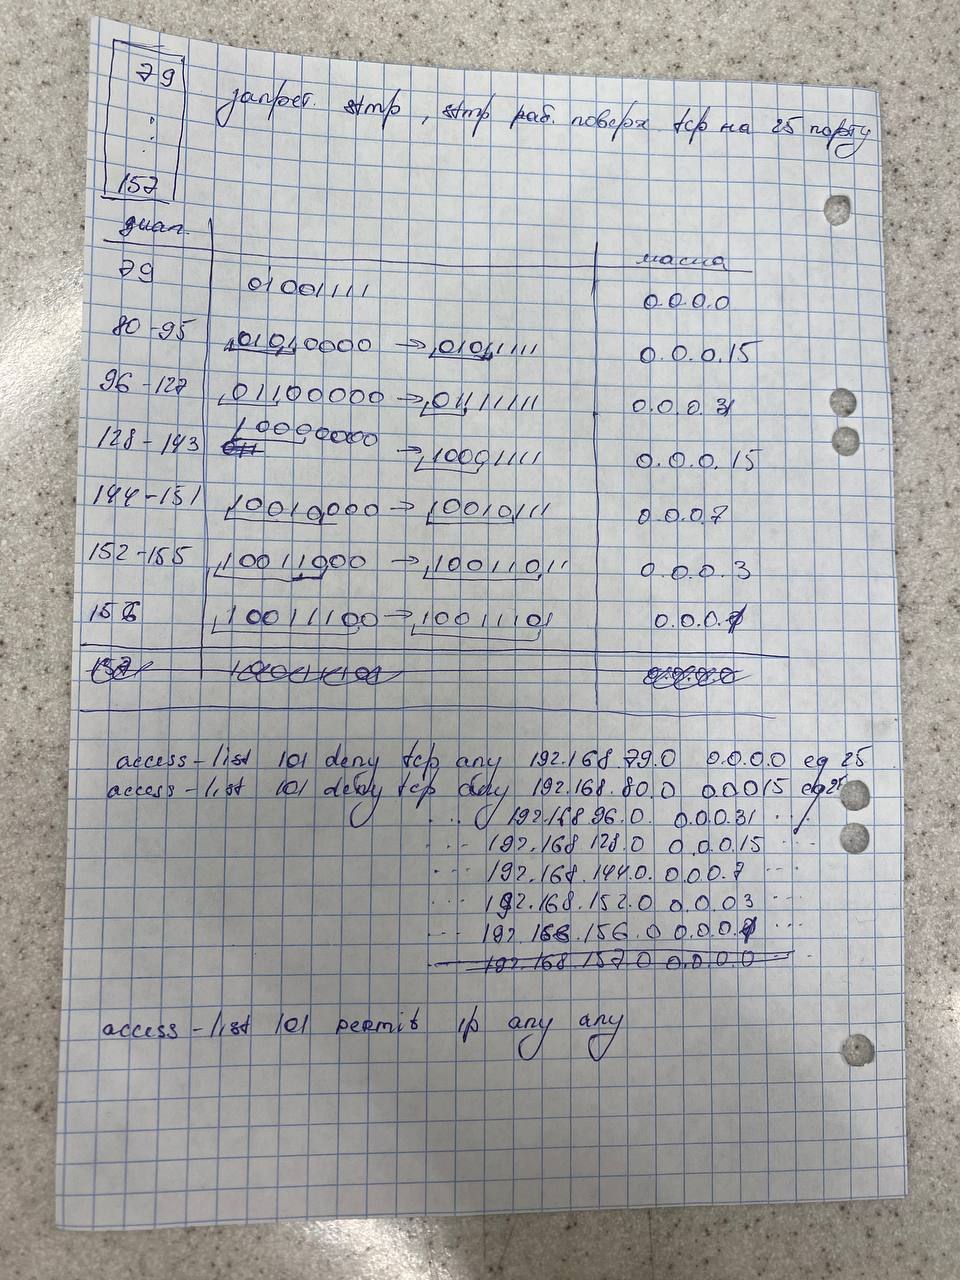 79
:
157
запрет. stmp, stmp раб. поверх tcp на 25 порту
диап. маска
79 01001111 0.0.0.0
80-95 01010000 → 01011111 0.0.0.15
96-127 01100000 → 01111111 0.0.0.31
128-143 10000000 → 10001111 0.0.0.15
144-151 10010000 → 10010111 0.0.0.7
152-155 10011000 → 10011011 0.0.0.3
156 10011100 → 10011101 0.0.0.1
157 10011101 0.0.0.0
access-list 101 deny tcp any 192.168.79.0 0.0.0.0 eq 25
access-list 101 deny tcp any 192.168.80.0 0.0.0.15 eq 25
... 192.168.96.0. 0.0.0.31 ...
... 192.168.128.0 0.0.0.15 ...
... 192.168.144.0. 0.0.0.7 ...
... 192.168.152.0 0.0.0.03 ...
... 192.168.156.0 0.0.0.1 ...
192.168.157.0 0.0.0.0
access-list 101 permit ip any any